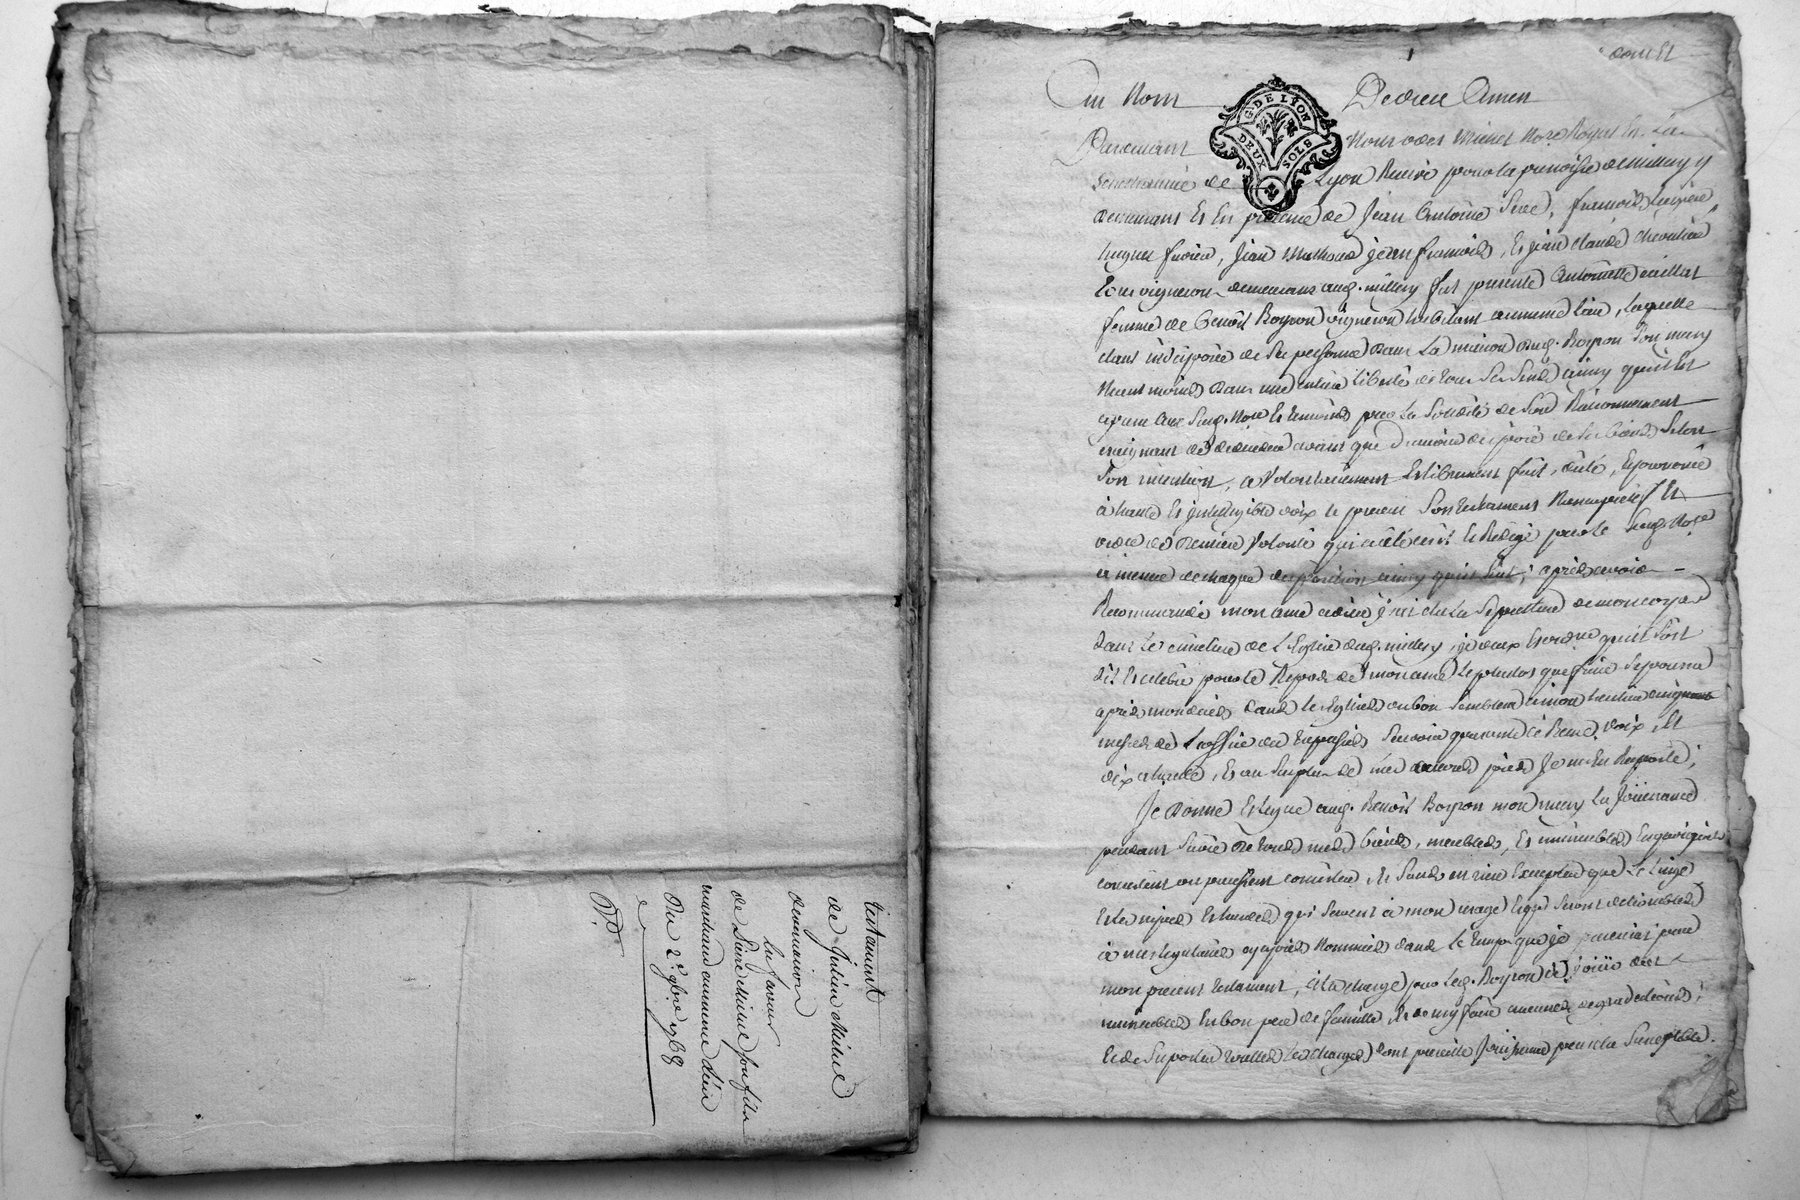 testament
de Julien Michel
demmairon
En faveur
de Sieur Michel son fils
marchand au même lieu
Du 2e. 9bre 1768
Au Nom De dieu Amen
G. DE LYON
DEUX SOLS
Pardevant Nous Michel Nore. Royal En La
Senechaussée de Lyon Reservé pour la paroisse de millery y
demeurant Et En presence de Jean Antoine François
hugues Jean jean françois, Et jean claude
tous vignerons demeurans aud. millery fut presente Antoinette
femme de Benoît Boyron vigneron habitant au meme lieu, laquelle
étant indisposée de Sa personne dans La maison dud. Boyron Son mary
Neantmoins dans une entiere liberté de tous Ses Sens ainsy qu'il Est
aparu aux Susd. Nore. Et temoins par La Solidité de Son Raisonnement
craignant de deceder avant que d'avoir disposé de Ses biens Selon
Son intention, a Volontairement Et librement fait, dicté, Et prononcé
à haute Et intelligible voix le present Son testament Noncupatif Et
ordre de derniere Volonté qui a été écrit Et Redigé par le Susd. Nore.
à mesure de chaque disposition ainsy qu'il Suit; après avoir
Recommandé mon ame à dieu j'ay élu La Sepulture de mon corps
dans Le cimetiere de L'Eglise dud. millery, je veux Et ordonne qu'il Soit
dit Et célébré pour le Repos de mon ame Le plutôt que faire Se pourra
après mon décès dans les Eglises ou bon Semblera à mon heritier
messes de L'office des trépassés Savoir quarante à Basse voix, Et
dix à haute, Et au Surplus de mes œuvres pies Je m'En Rapporte;
Je Donne Et legue aud. Benoît Boyron mon mary La Jouissance
pendant Sa vie De tous mes biens, meubles, Et immeubles En quoi qu'ils
consistent ou puissent consister Et Sans en rien Excepter que Le linge
Et les nipes Et hardes qui Servent à mon usage Lesqls. Seront délivrables
à mes legataires cy après Nommés dans le temps que je fixerai par
mon present testament, à La charge par Led. Boyron de jouir des
immeubles En bon pere de famille Et de n'y faire aucunes dégradations;
Et de Suporter toutes Les charges dont pareille Jouissance peut être Susceptible.